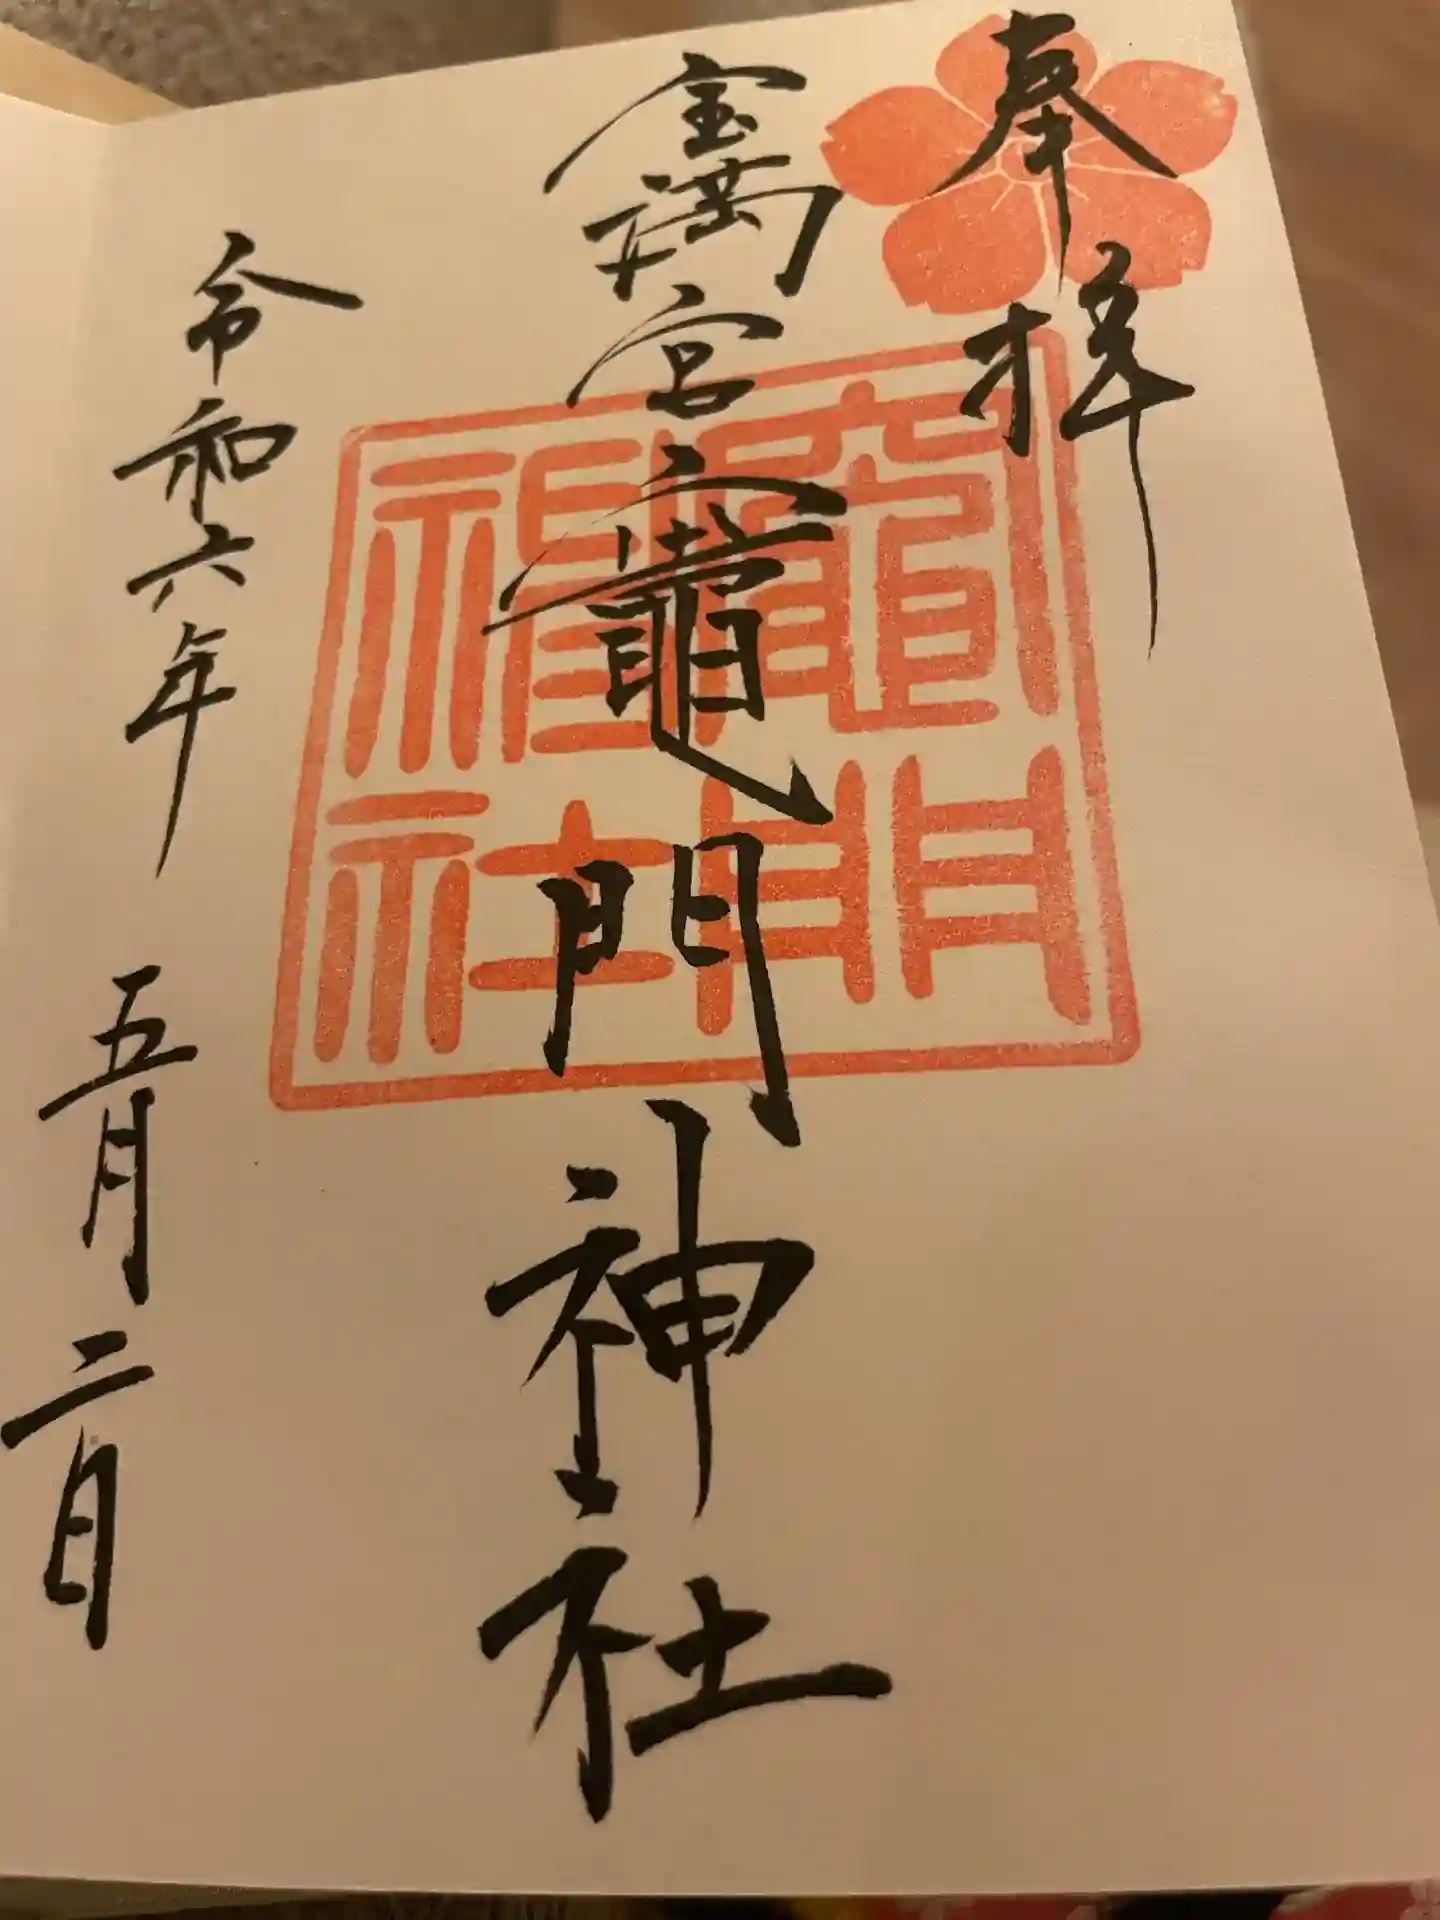 奉拝
宝満宮竈門神社
竈門
神社
令和六年 五月二日